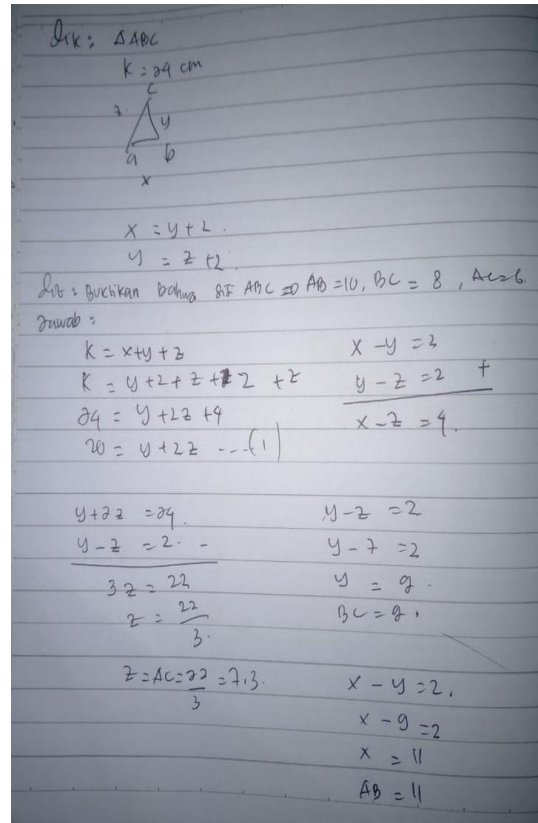 Dik : △ABC
K = 24 cm
c
z
y
a b
x
x = y + 2 .
y = z + 2 .
Dit : Buktikan bahwa ABC => AB = 10, BC = 8 , AC = 6
Jawab :
K = x + y + z
K = y + 2 + z + 2 + z
24 = y + 2z + 4
20 = y + 2z ... (1)
x - y = 2
y - z = 2 +
x - z = 4 .
y + 2z = 24 .
y - z = 2 . -
3z = 22
z = 22
3 .
z = AC = 22 = 7.3 .
3
y - z = 2
y - 7 = 2
y = 9 .
BC = 9 .
x - y = 2 .
x - 9 = 2
x = 11
AB = 11